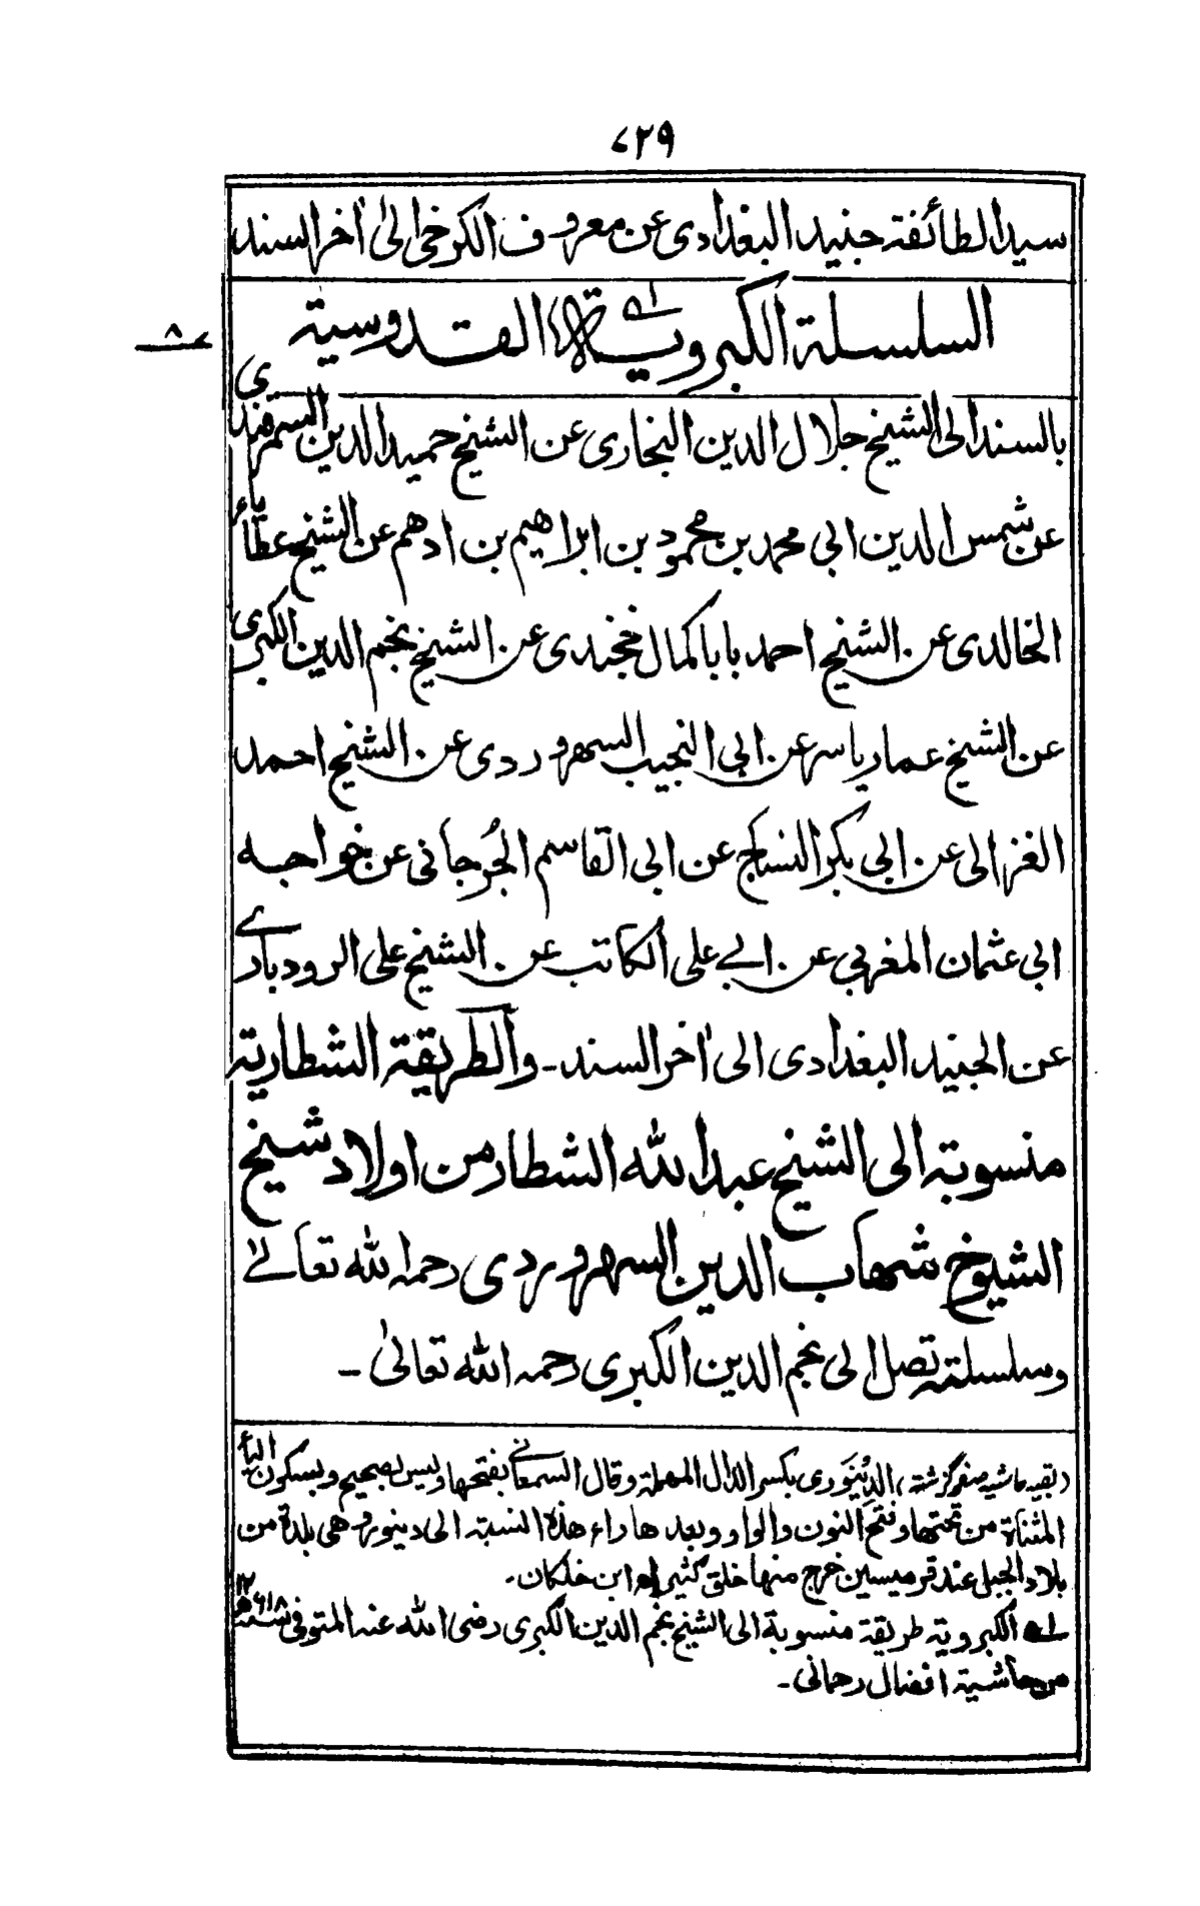 ۷۲۹
سيد الطائفة جنيد البغدادى عن معروف الكرخى الى اٰخر السند
السلسلة الكبروية القدوسية
۸
بالسند الى الشيخ جلال الدين البخارى عن الشيخ حميد الدين السمرقندى
عن شمس الدين ابى محمد بن محمود بن ابراهيم بن ادهم عن الشيخ عطايا
الخالدى عن الشيخ احمد بابا كمال خجندى عن الشيخ نجم الدين الكبرى
عن الشيخ عمار ياسر عن ابى النجيب السهروردى عن الشيخ احمد
الغزالى عن ابى بكر النساج عن ابى القاسم الجُرجانى عن خواجه
ابى عثمان المغربى عن ابى على الكاتب عن الشيخ على الرودبارے
عن الجنيد البغدادى الى اٰخر السند ـ والطريقة الشطارية
منسوبة الى الشيخ عبد الله الشطار من اولاد شيخ
الشيوخ شهاب الدين السهروردى رحمه الله تعالےٰ
وسلسلته تصل الى نجم الدين الكبرى رحمه الله تعالىٰ ـ
(بقيه حاشيه صفحه گزشته) الدِيْنَوَرى بكسر الدال المهملة وقال السمعانے بفتحها وليس بصحيح وبسكون الياء
المثناة من تحتها وفتح النون والواو وبعدها راء هذه النسبة الى دينور وهى بلدة من
بلاد الجبل عند قرميسين خرج منها خلق كثير اه ابن خلكان ـ
لـه الكبروية طريقة منسوبة الى الشيخ نجم الدين الكبرى رضى الله عنه المتوفى سنة ۶۱۸ھ ۱۲
من حاشية افضال رحمانى ـ